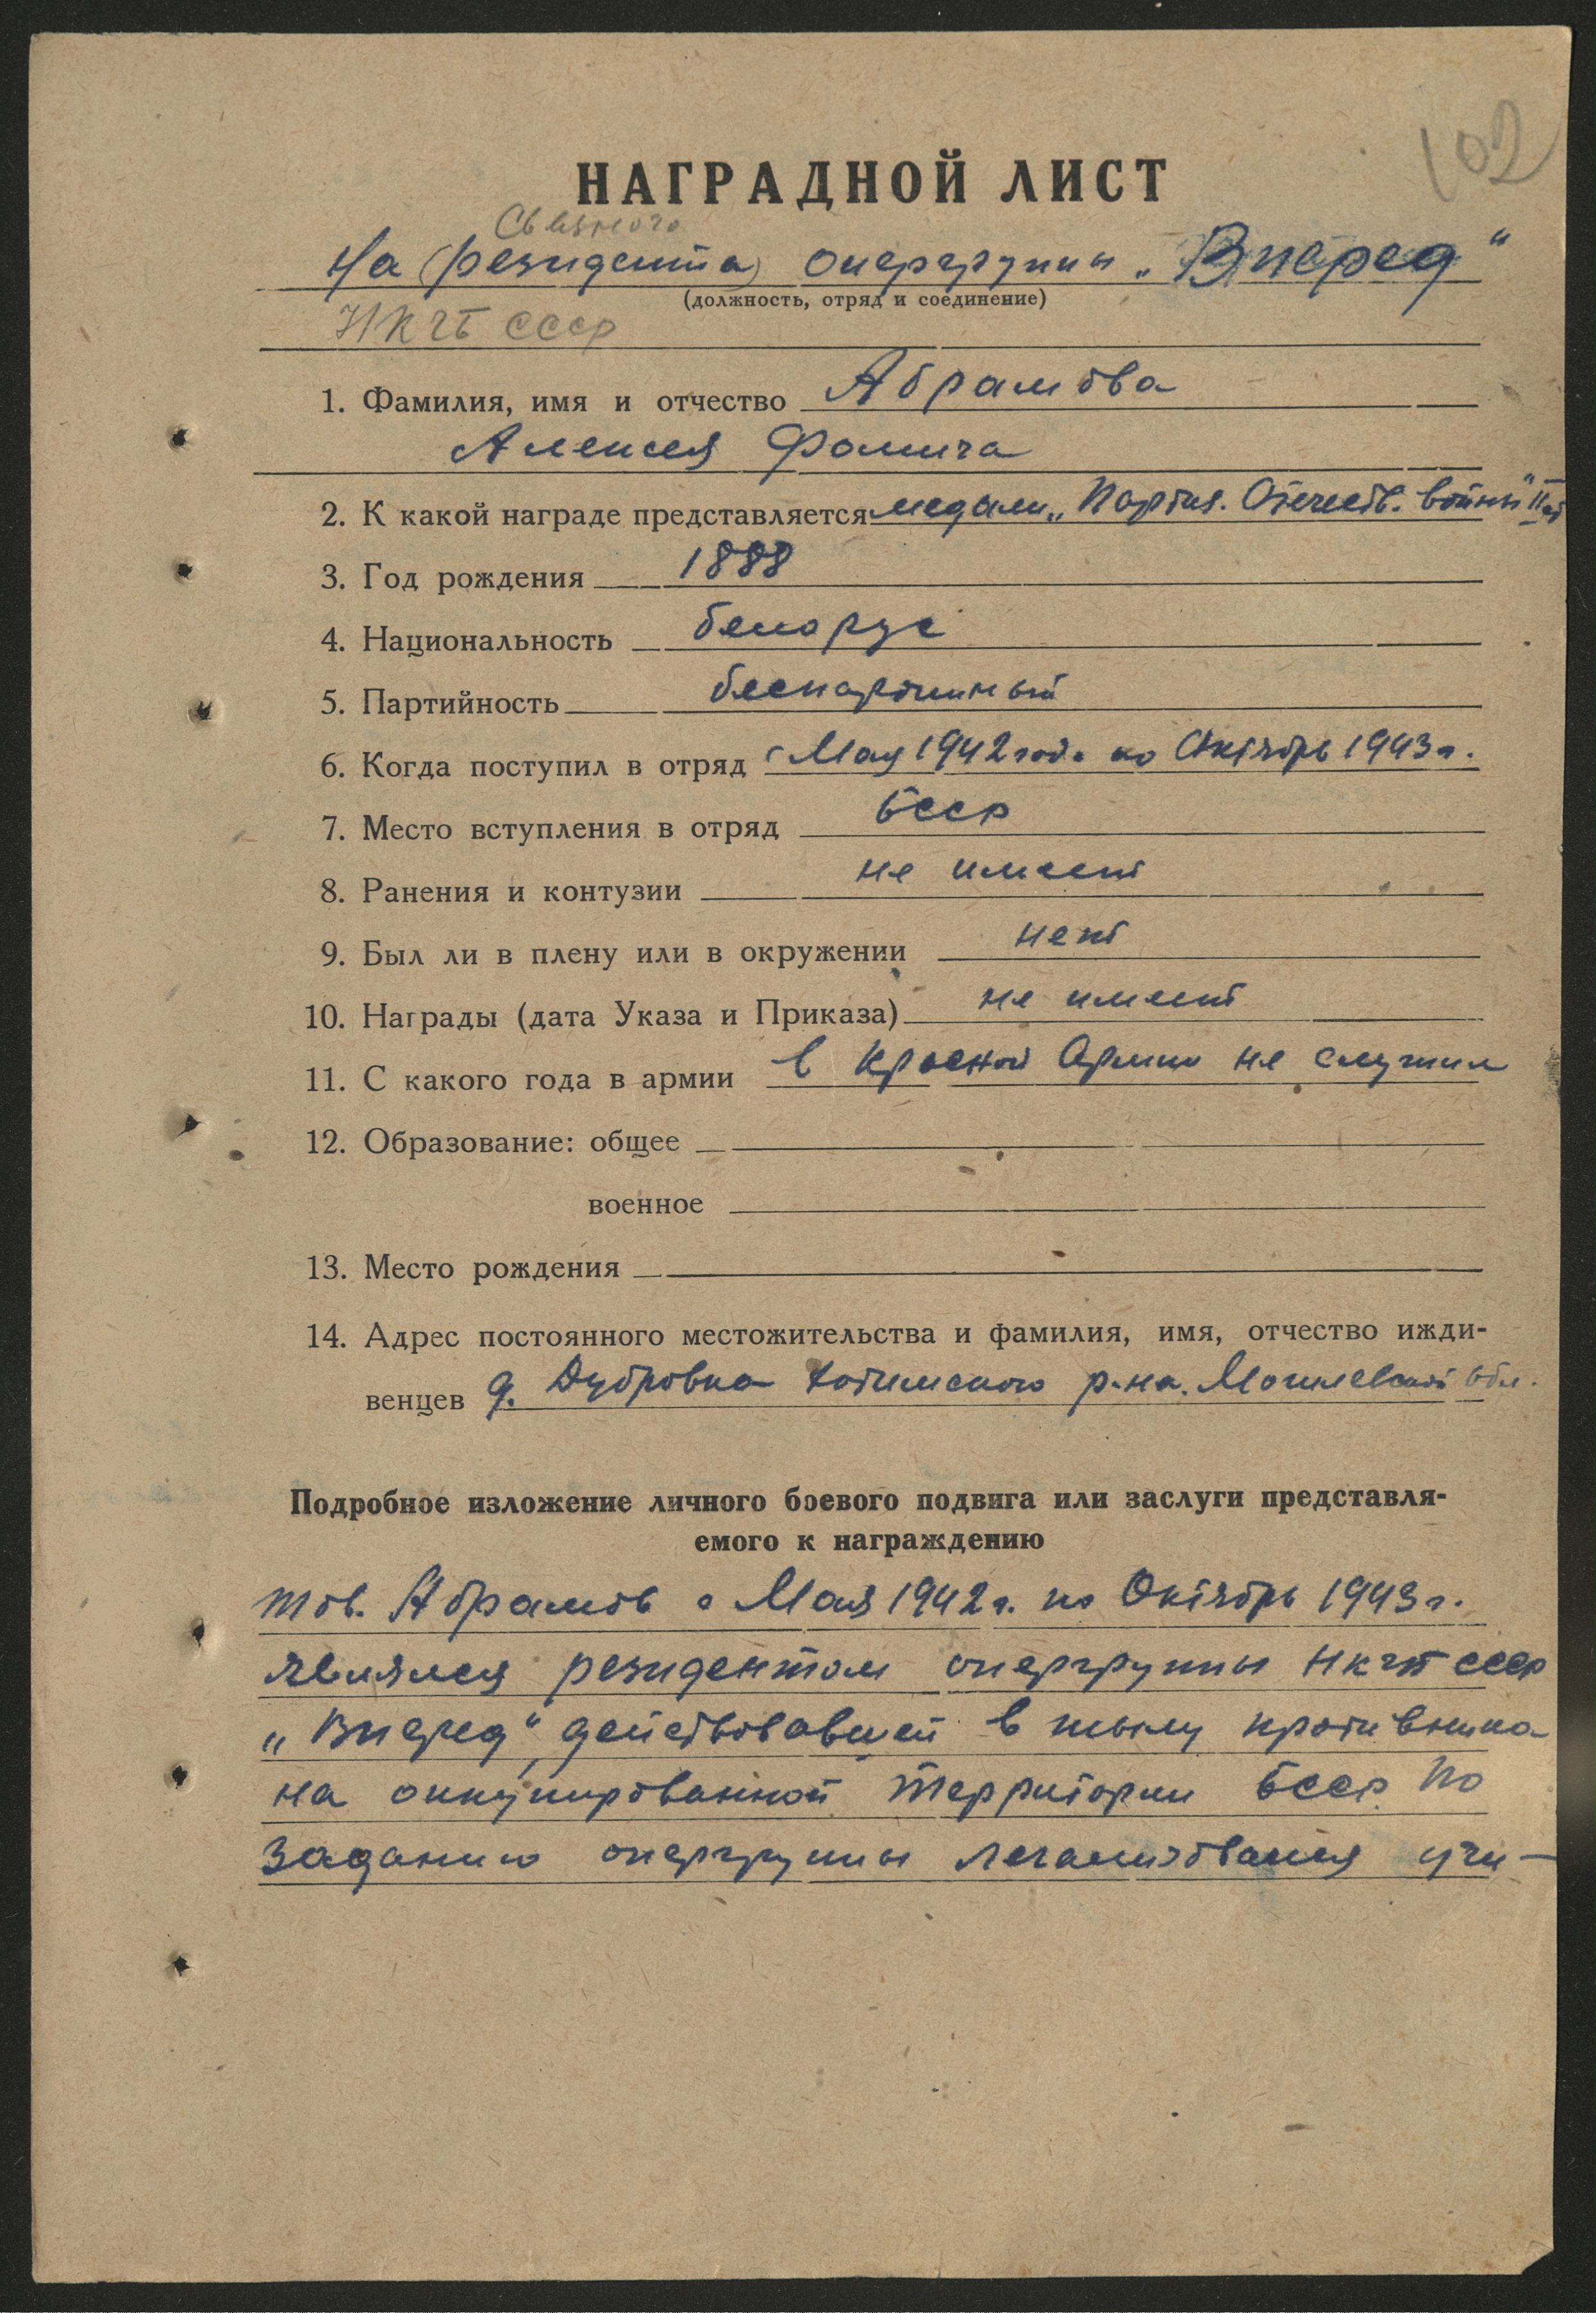 102
НАГРАДНОЙ ЛИСТ
Связного
На (резидента) опергруппы „Вперед"
(должность, отряд и соединение)
НКГБ СССР
1. Фамилия, имя и отчество Абрамова
Алексея Фомича
2. К какой награде представляется медали „Партиз. Отечеств. войны" II ст
3. Год рождения 1888
4. Национальность белорус
5. Партийность беспартийный
6. Когда поступил в отряд с Мая 1942 года по Октябрь 1943 г.
7. Место вступления в отряд БССР
8. Ранения и контузии не имеет
9. Был ли в плену или в окружении нет
10. Награды (дата Указа и Приказа) не имеет
11. С какого года в армии в Красной Армии не служил
12. Образование: общее
военное
13. Место рождения
14. Адрес постоянного местожительства и фамилия, имя, отчество ижди-
венцев д. Дубровка Хотимского р-на. Могилевской обл.
Подробное изложение личного боевого подвига или заслуги представля-
емого к награждению
тов. Абрамов с Мая 1942 г. по Октябрь 1943 г.
являлся резидентом опергруппы НКГБ СССР
„Вперед", действовавшей в тылу противника
на оккупированной территории БССР. По
заданию опергруппы легализовался учи-